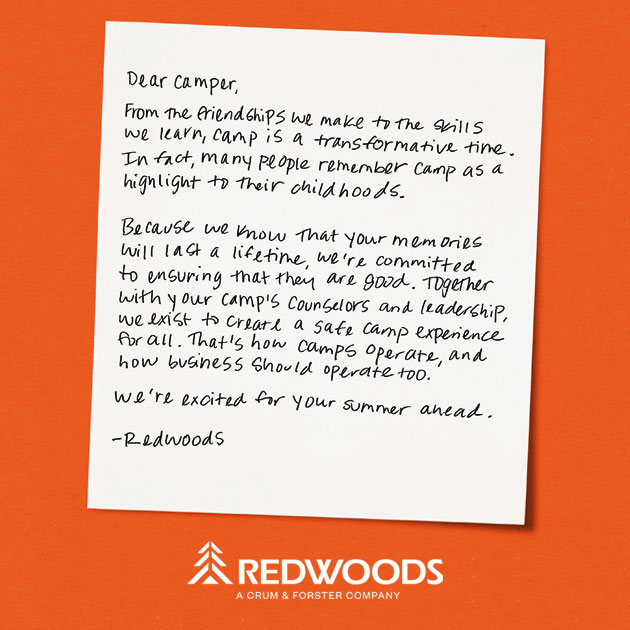 Dear Camper,
From the friendships we make to the skills
we learn, camp is a transformative time.
In fact, many people remember camp as a
highlight to their childhoods.
Because we know that your memories
will last a lifetime, we're committed
to ensuring that they are good. Together
with your camp's counselors and leadership,
we exist to create a safe camp experience
for all. That's how camps operate, and
how business should operate too.
We're excited for your summer ahead.
-Redwoods
REDWOODS
A CRUM & FORSTER COMPANY